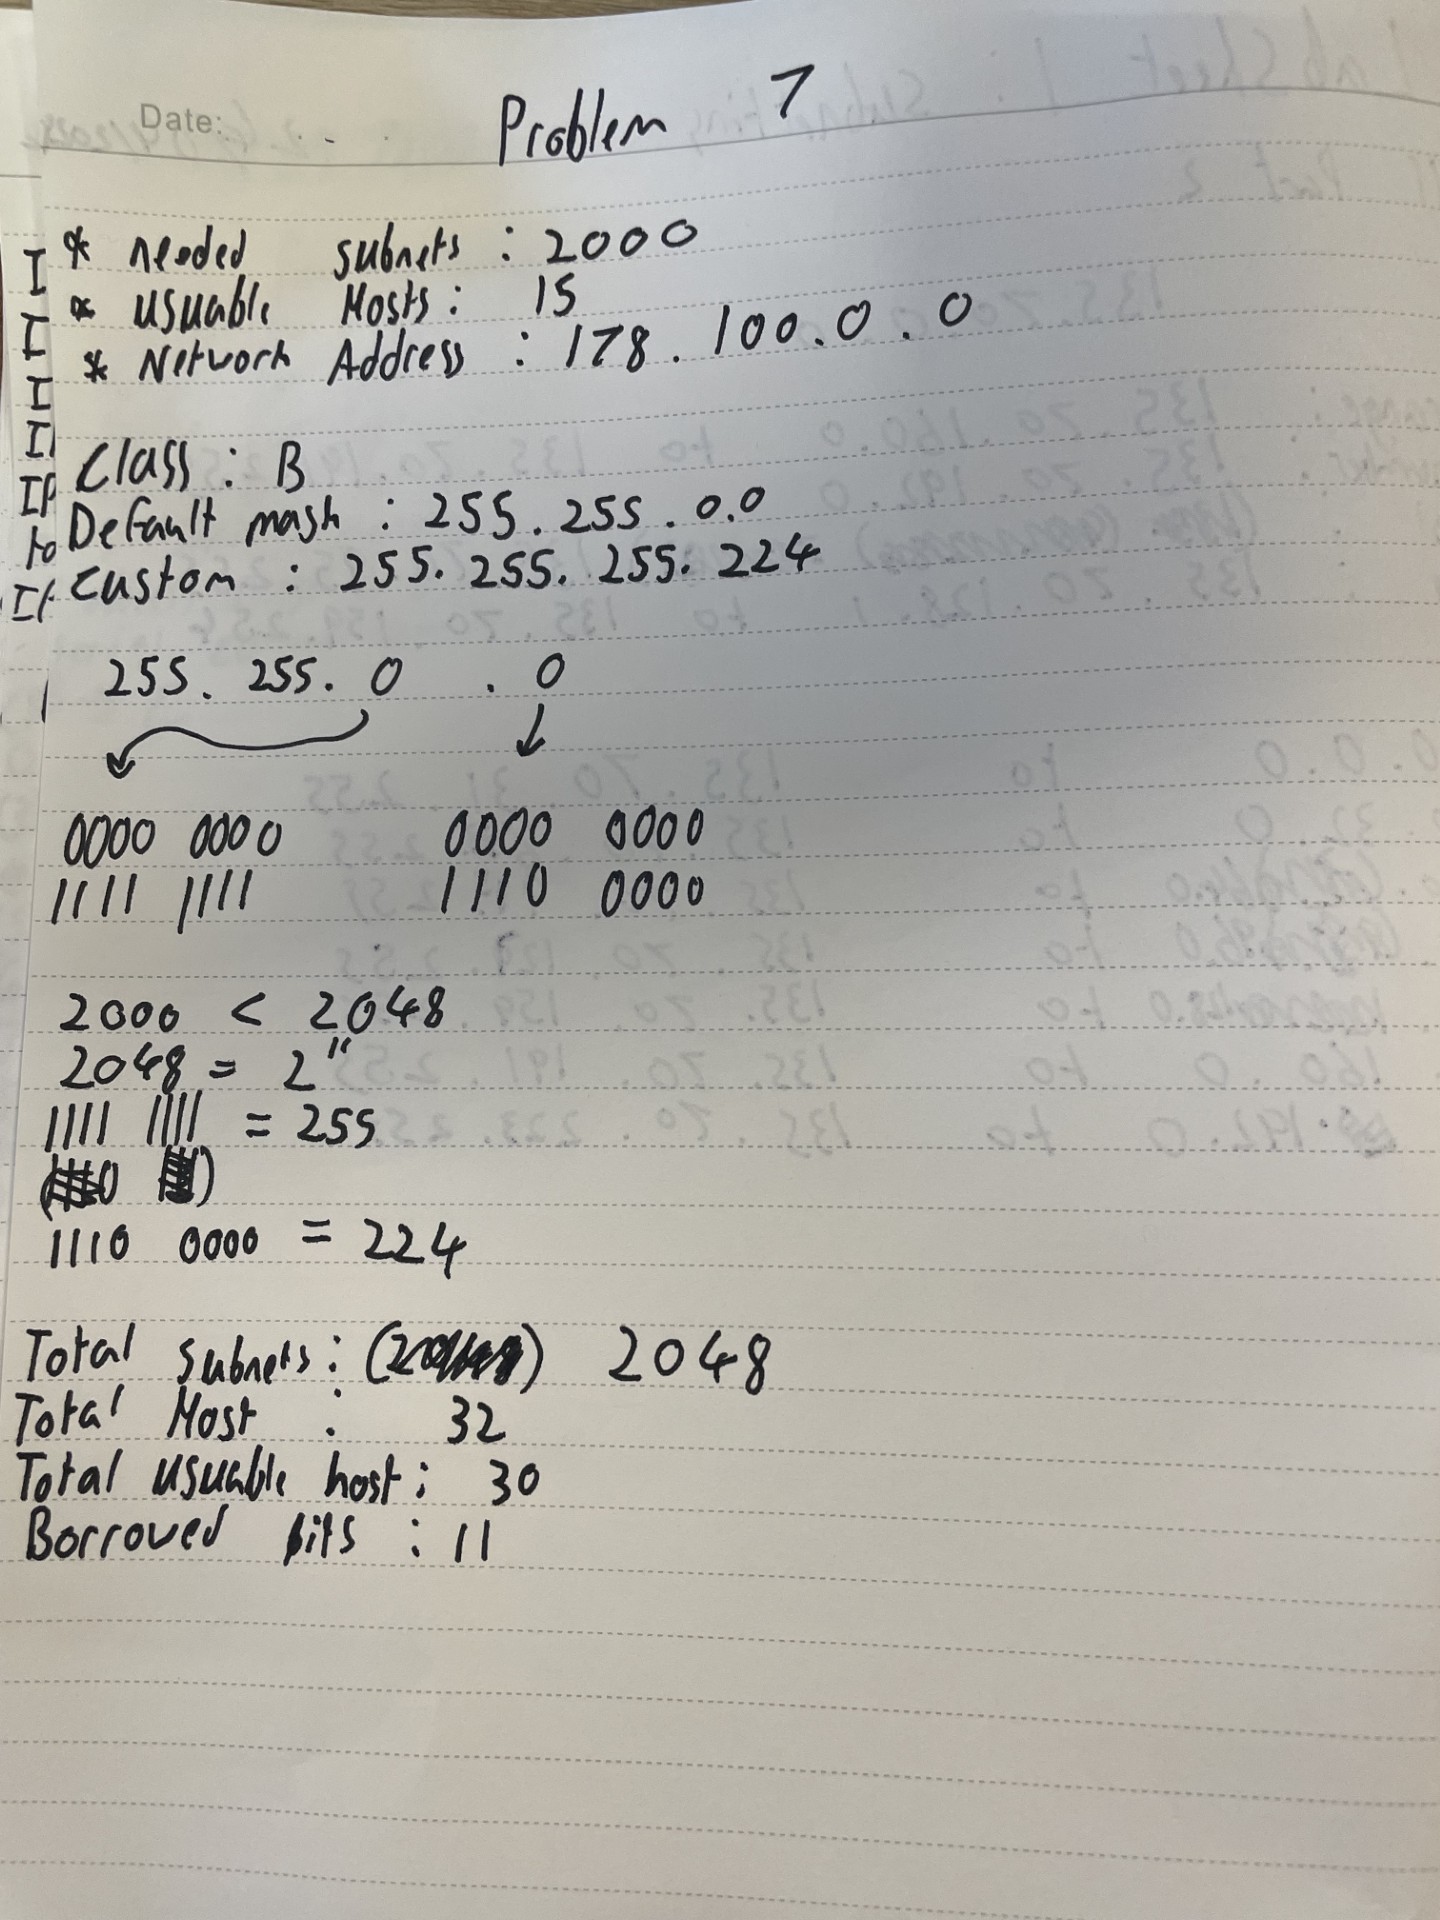 Date:
Problem 7
* needed subnets : 2000
* usuable Hosts : 15
* Network Address : 178.100.0.0
Class : B
Default mask : 255.255.0.0
Custom : 255.255.255.224
255.255.0 .0
0000 0000 0000 0000
1111 1111 1110 0000
2000 < 2048
2048 = 2¹¹
1111 1111 = 255
1110 0000 = 224
Total subnets : 2048
Total Host : 32
Total usuable host : 30
Borrowed bits : 11